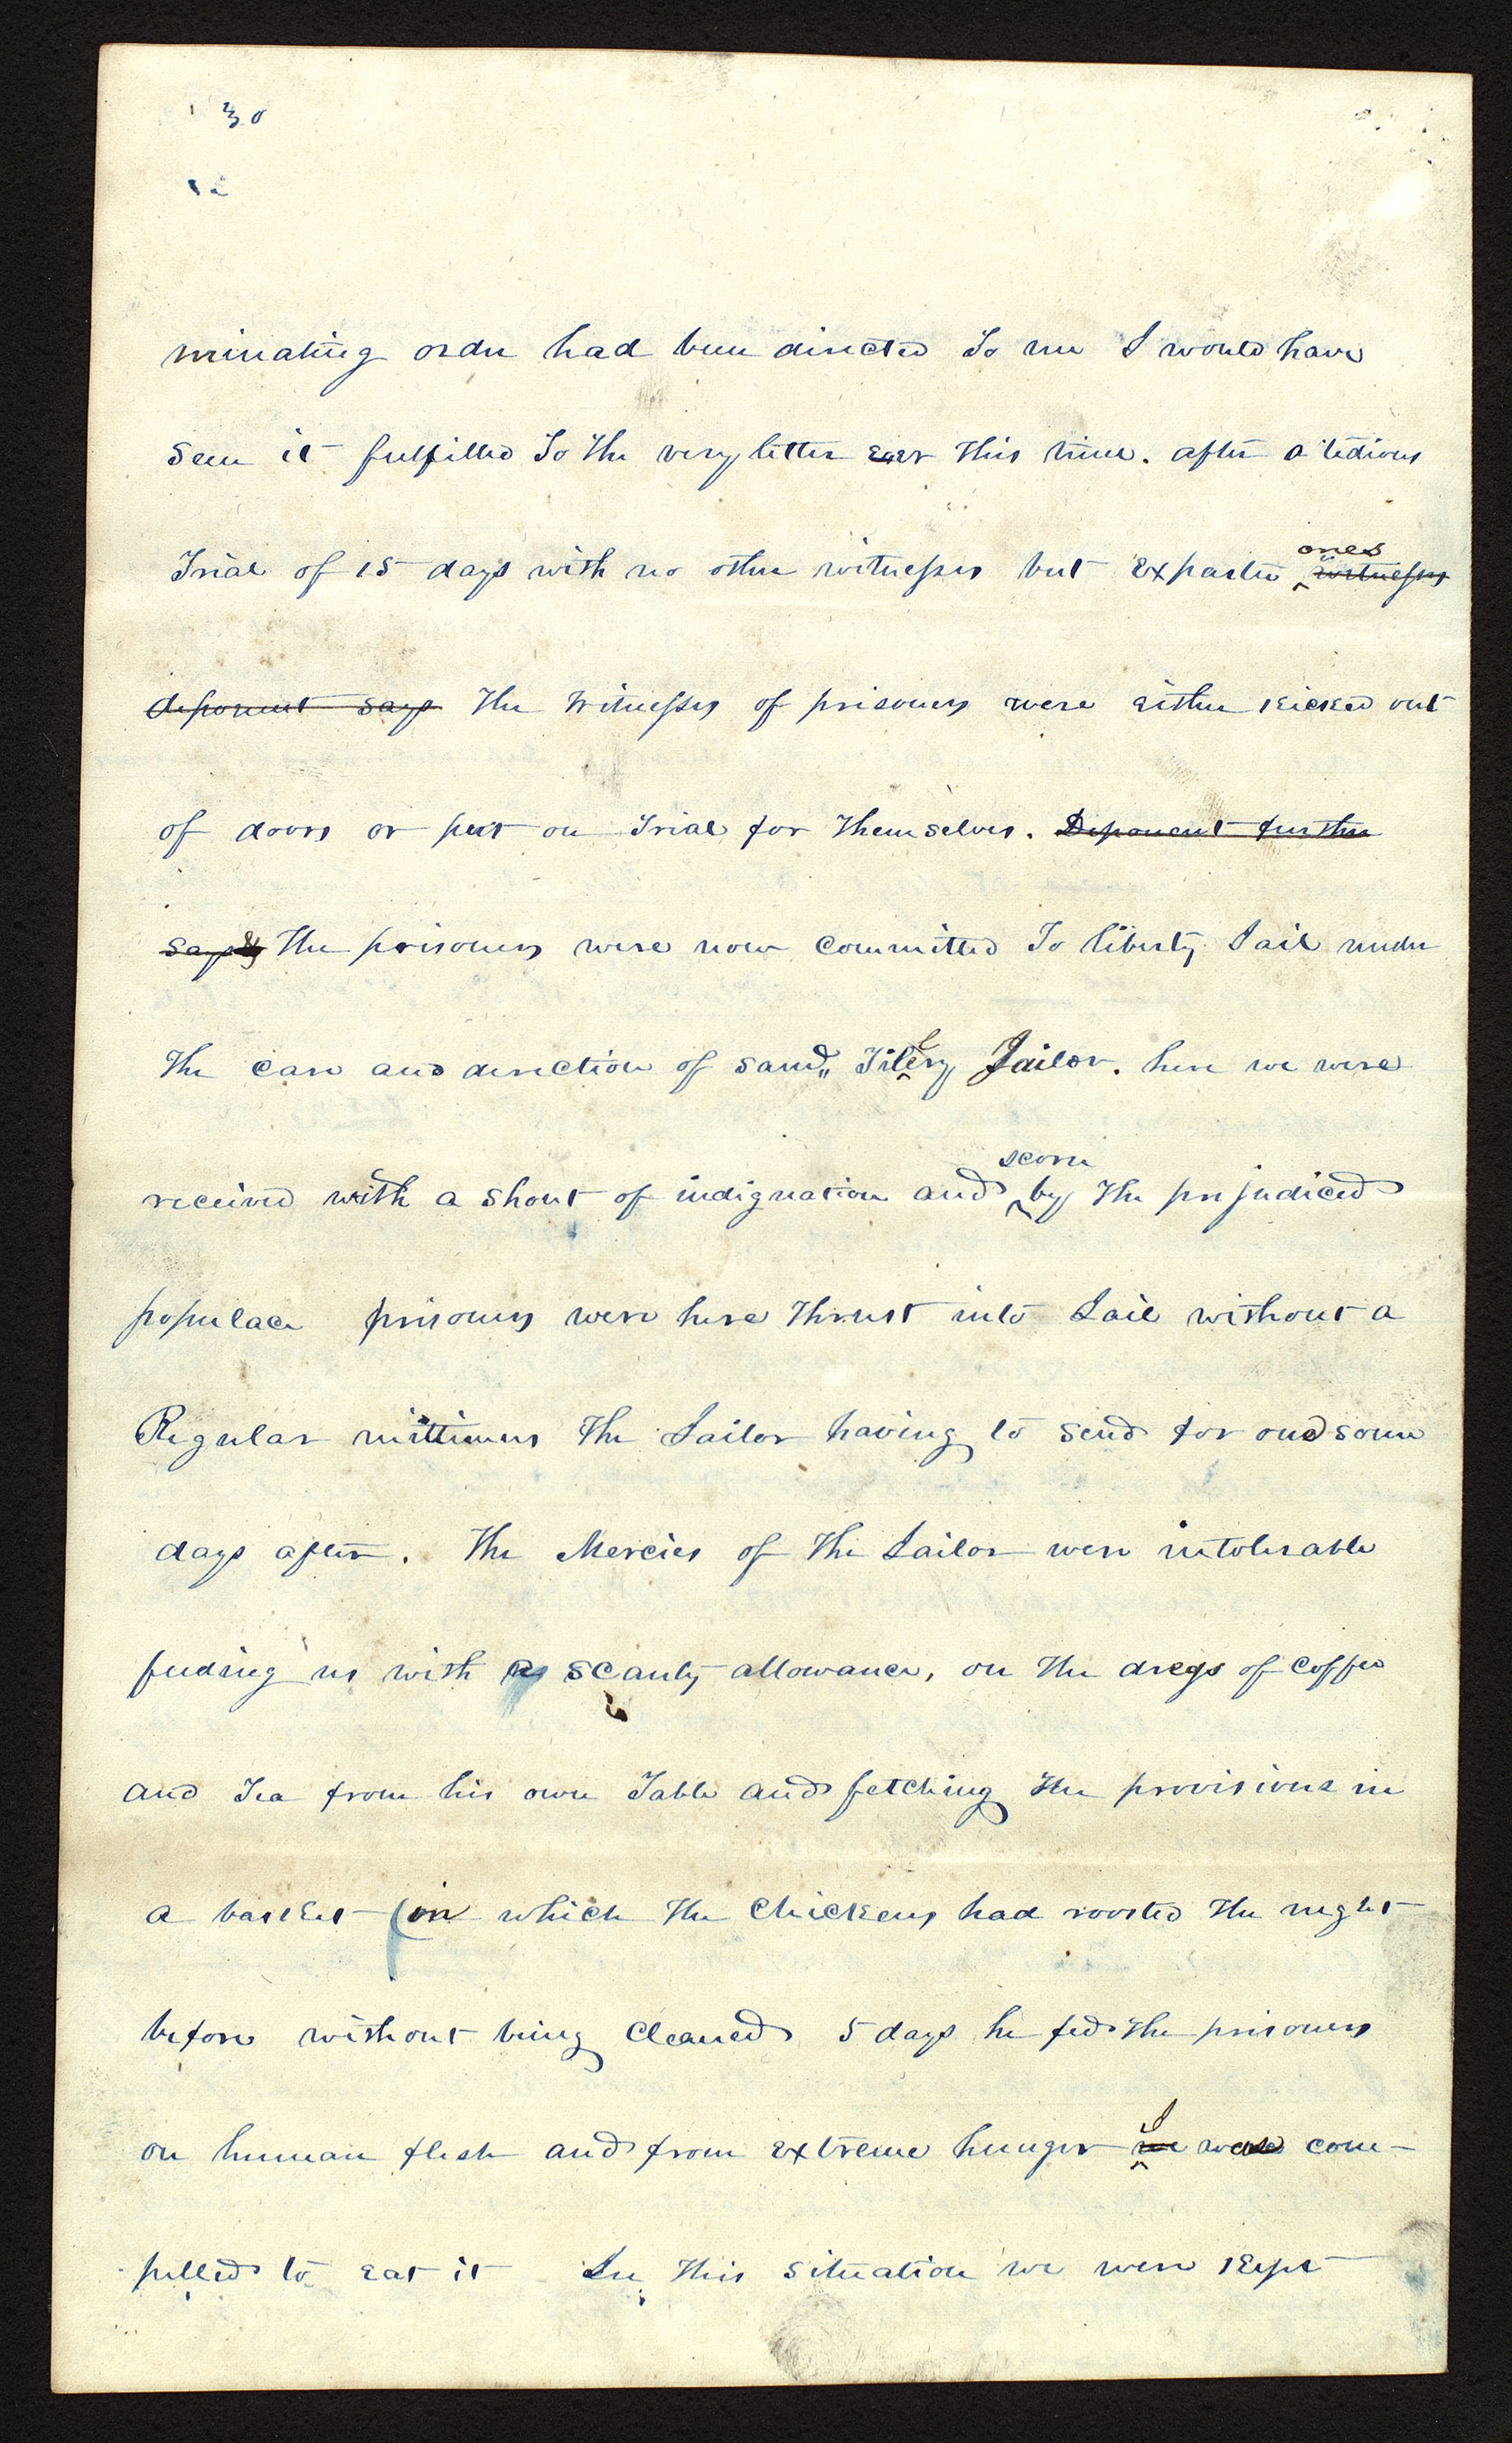 30
minating order had been directed To me I would have
seen it fulfilled To the very letter ear this time. after a tedious
Trial of 15 days with no other witnesses but Exparte ones witnesses
deponent says The witnesses of prisoners were either kicked out
of doors or put on Trial for themselves. Deponent further
says The prisoners were now committed To liberty Jail under
the care and direction of Saml, Tillery Jailor. here we were
received with a shout of indignation and scorn by the prejudiced
populace prisoners were here thrust into Jail without a
Regular mittimus the Jailor having to send for one some
days after. The Mercies of the Jailor were intolerable
feeding us with a scanty allowance, on the dregs of coffee
and Tea from his own Table and fetching the provisions in
a basket (on which the chickens had roosted the night
before without being cleaned 5 days he fed the prisoners
on human flesh and from extreme hunger we I was com-
pelled to eat it In this situation we were kept